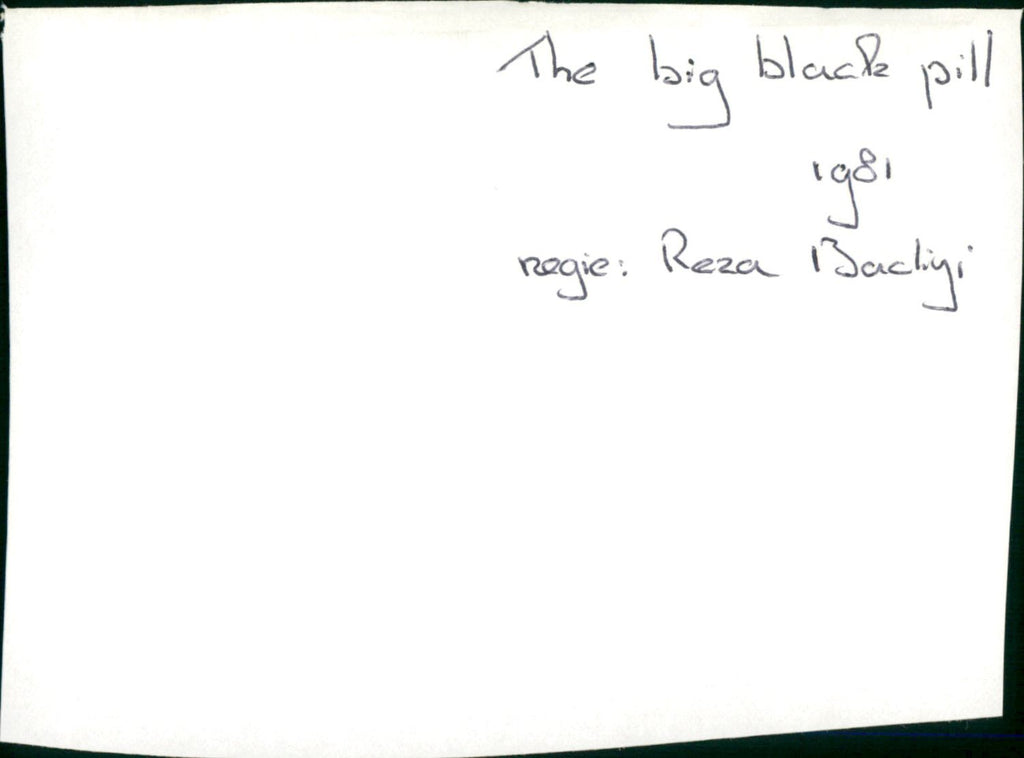 The big black pill
1981
regie: Reza Badiyi